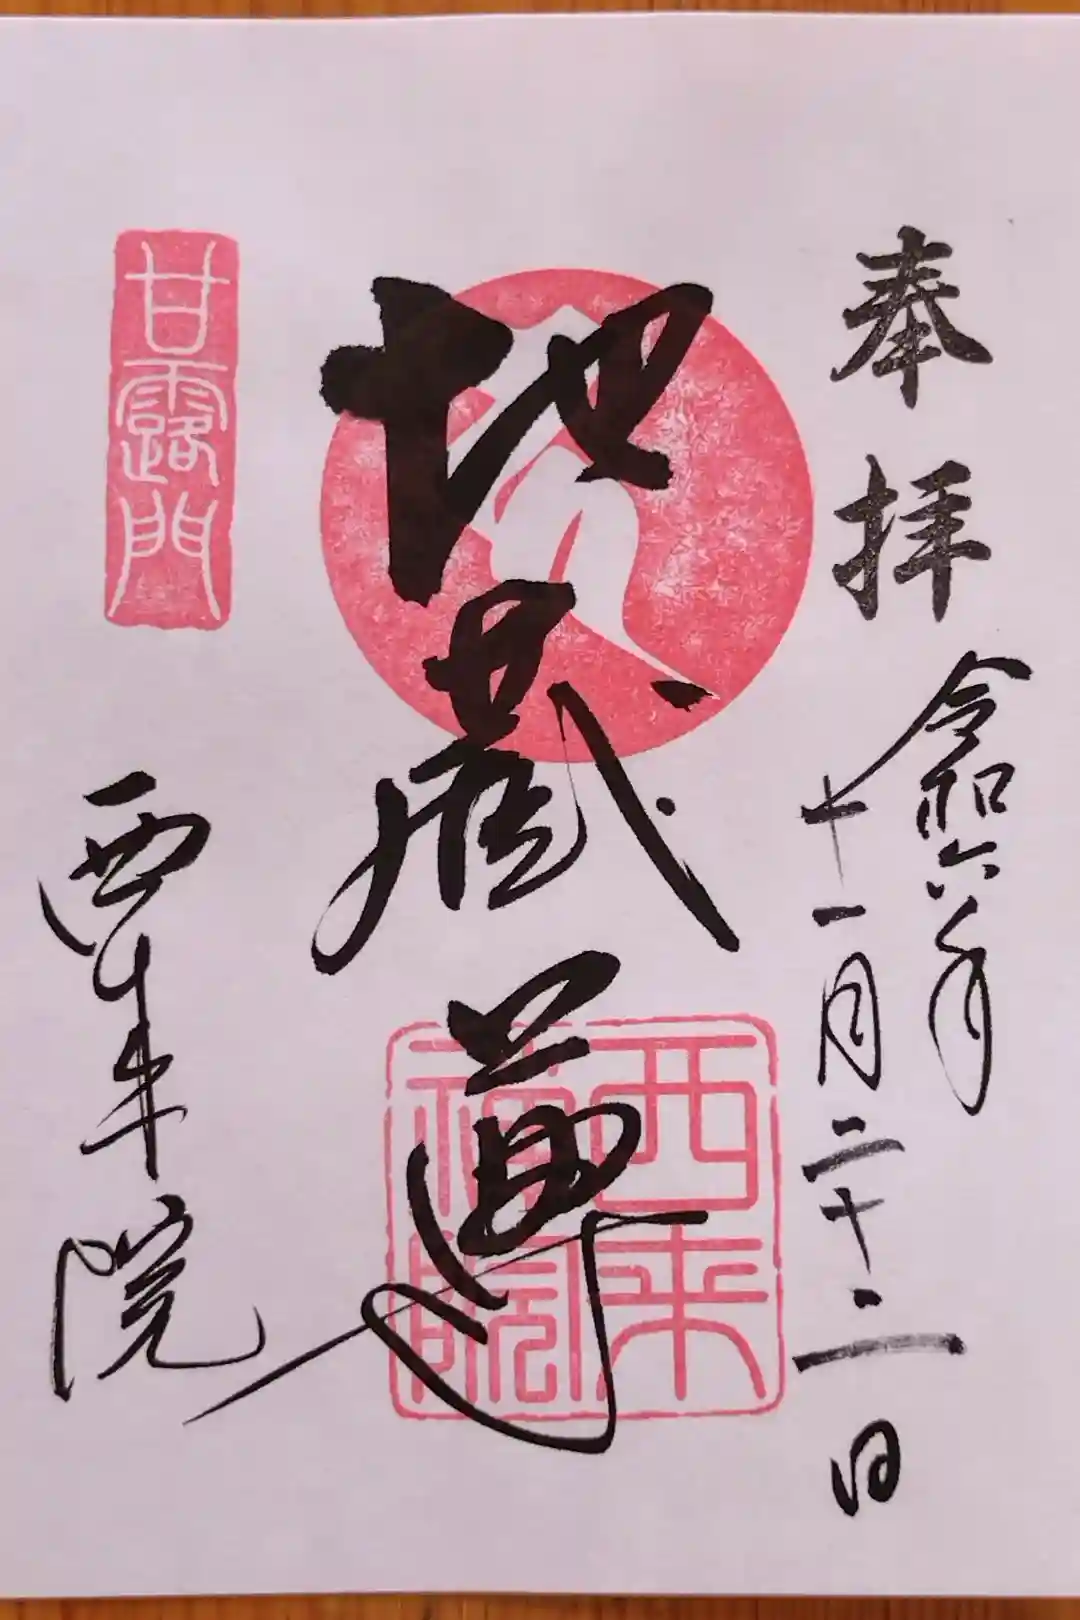 奉拝
令和六年
十一月二十二日
地蔵尊
甘露門
西来院
西来禅院